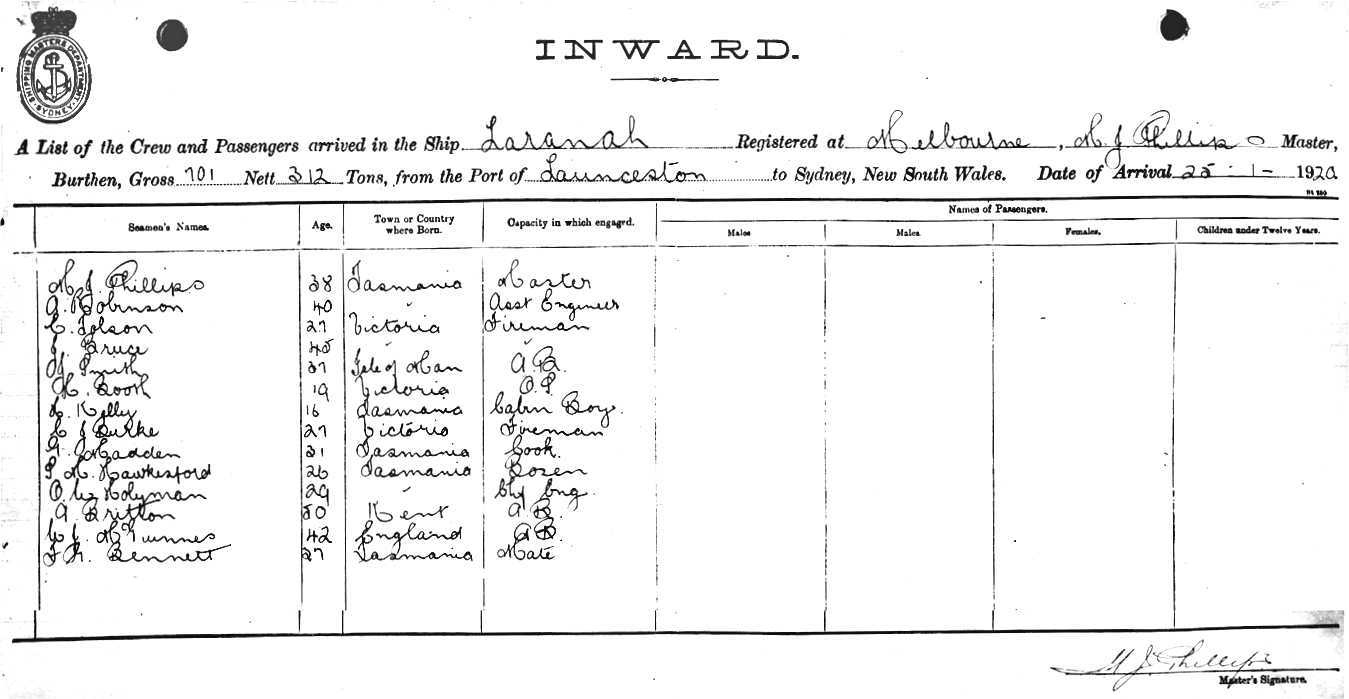 SHIPPING MASTERS DEPARTMENT SYDNEY
INWARD.
A List of the Crew and Passengers arrived in the Ship Laranah Registered at Melbourne, M J Phillips Master,
Burthen, Gross 701 Nett 312 Tons, from the Port of Launceston to Sydney, New South Wales. Date of Arrival 25-1-1920
Seamen's Names. Age. Town or Country where Born. Capacity in which engaged. Names of Passengers.
Males Males. Females. Children under Twelve Years.
M J. Phillips 38 Tasmania Master
A. Robinson 40 " Asst Engineer
C. Tolson 27 Victoria Fireman
J. Bruce 45 " "
Smith 37 Isle of Man A.B.
H. Booth 19 Victoria O.S.
Kelly 16 Tasmania Cabin Boy.
C J Burke 27 Victoria Fireman
Madden 31 Tasmania Cook.
M. Hawkesford 26 Tasmania Bosen
Holyman 29 " Eng.
A. Britton 50 Kent A.B.
42 England A.B.
Bennett 27 Tasmania Mate
M J. Phillips
Master's Signature.